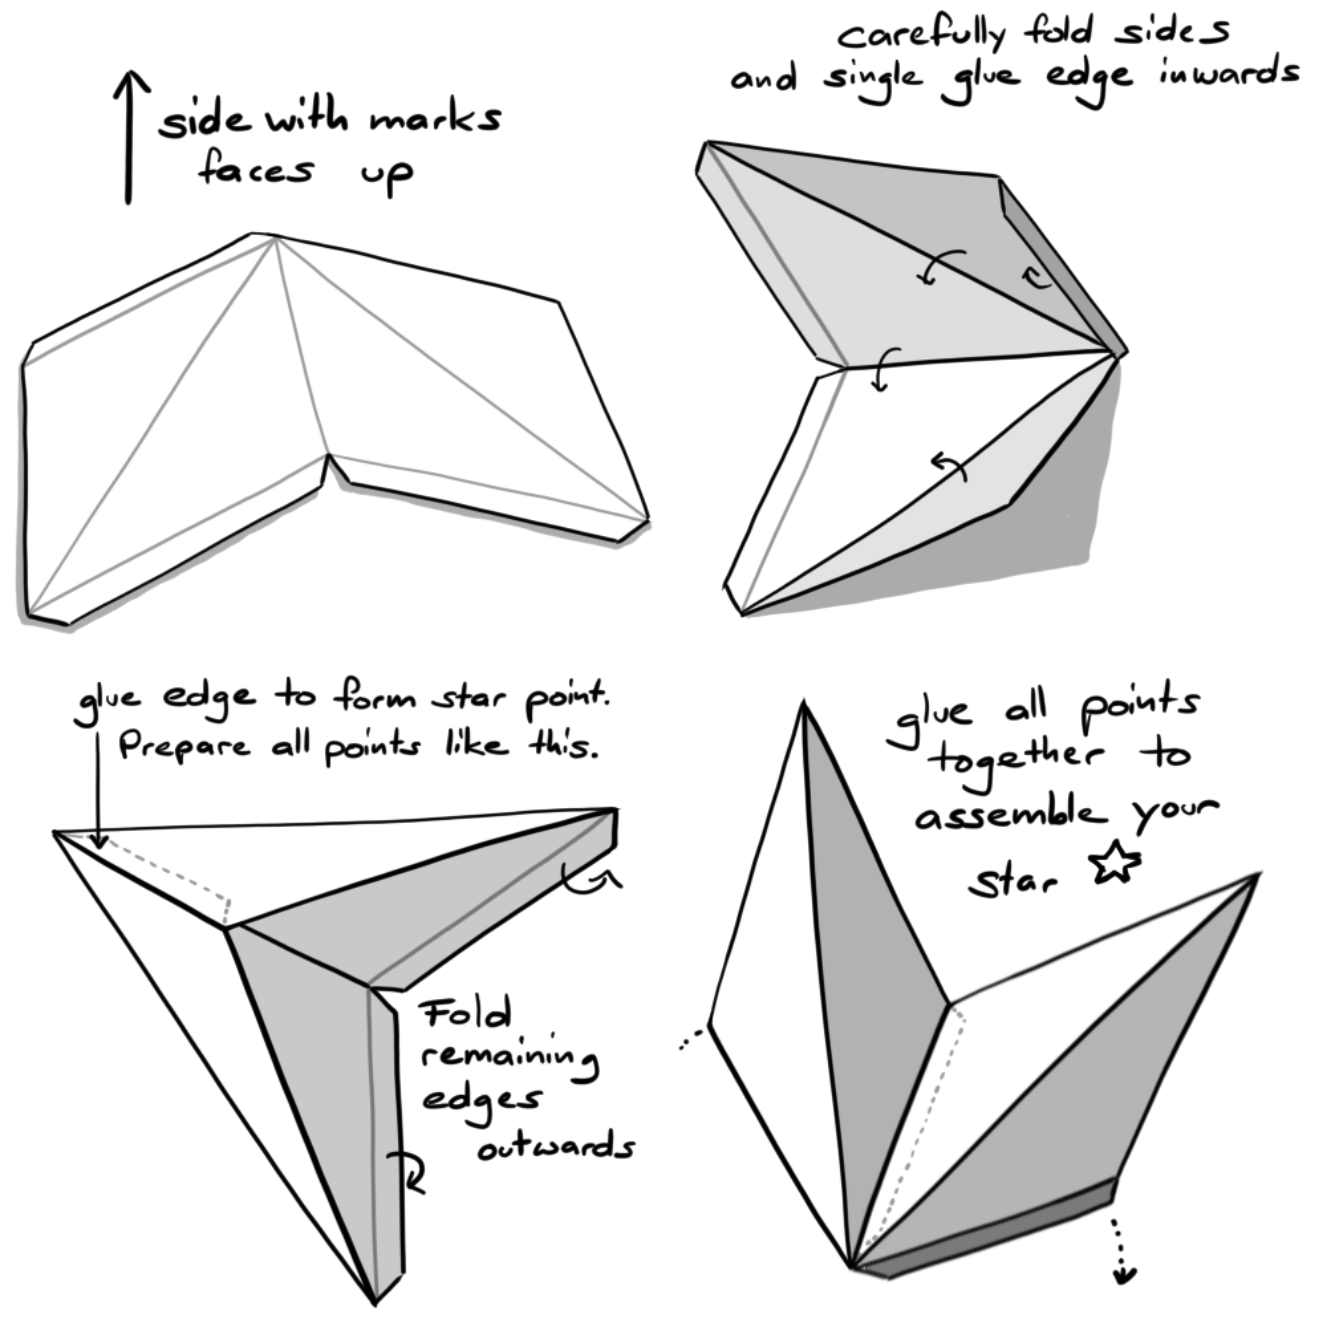 side with marks
faces up
carefully fold sides
and single glue edge inwards
glue edge to form star point.
Prepare all points like this.
Fold
remaining
edges
outwards
glue all points
together to
assemble your
star